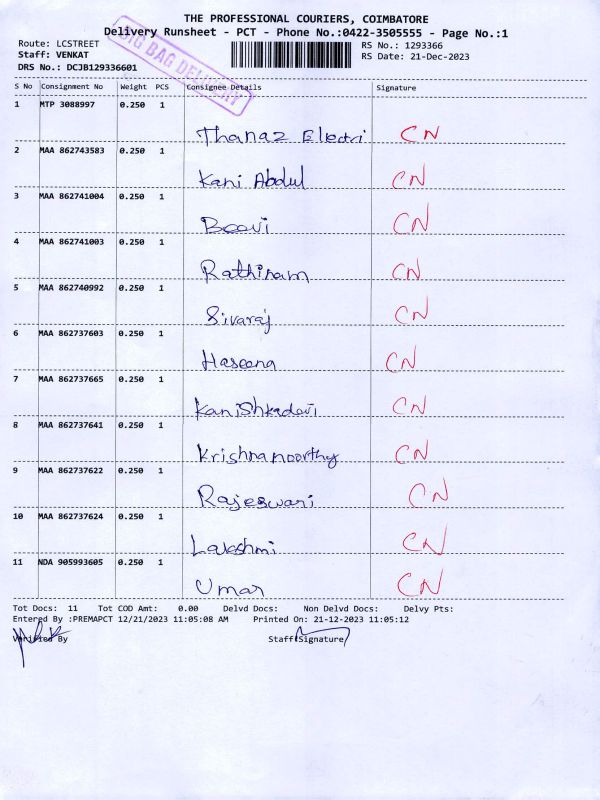 THE PROFESSIONAL COURIERS, COIMBATORE
Delivery Runsheet - PCT - Phone No.:0422-3505555 - Page No.:1
Route: LCSTREET RS No.: 1293366
Staff: VENKAT RS Date: 21-Dec-2023
DRS No.: DCJB129336601
BIG BAG DELIVERY
S No Consignment No Weight PCS Consignee Details Signature
1 MTP 3088997 0.250 1
Thanaz Electri CN
2 MAA 862743583 0.250 1
Kani Abdul CN
3 MAA 862741004 0.250 1
Beevi CN
4 MAA 862741003 0.250 1
Rathinam CN
5 MAA 862740992 0.250 1
Sivaraj CN
6 MAA 862737603 0.250 1
Haseena CN
7 MAA 862737665 0.250 1
Kanishkadevi CN
8 MAA 862737641 0.250 1
Krishnamoorthy CN
9 MAA 862737622 0.250 1
Rajeswari CN
10 MAA 862737624 0.250 1
Lakshmi CN
11 NDA 905993605 0.250 1
Umar CN
Tot Docs: 11 Tot COD Amt: 0.00 Delvd Docs: Non Delvd Docs: Delvy Pts:
Entered By :PREMAPCT 12/21/2023 11:05:08 AM Printed On: 21-12-2023 11:05:12
Verified By Staff Signature